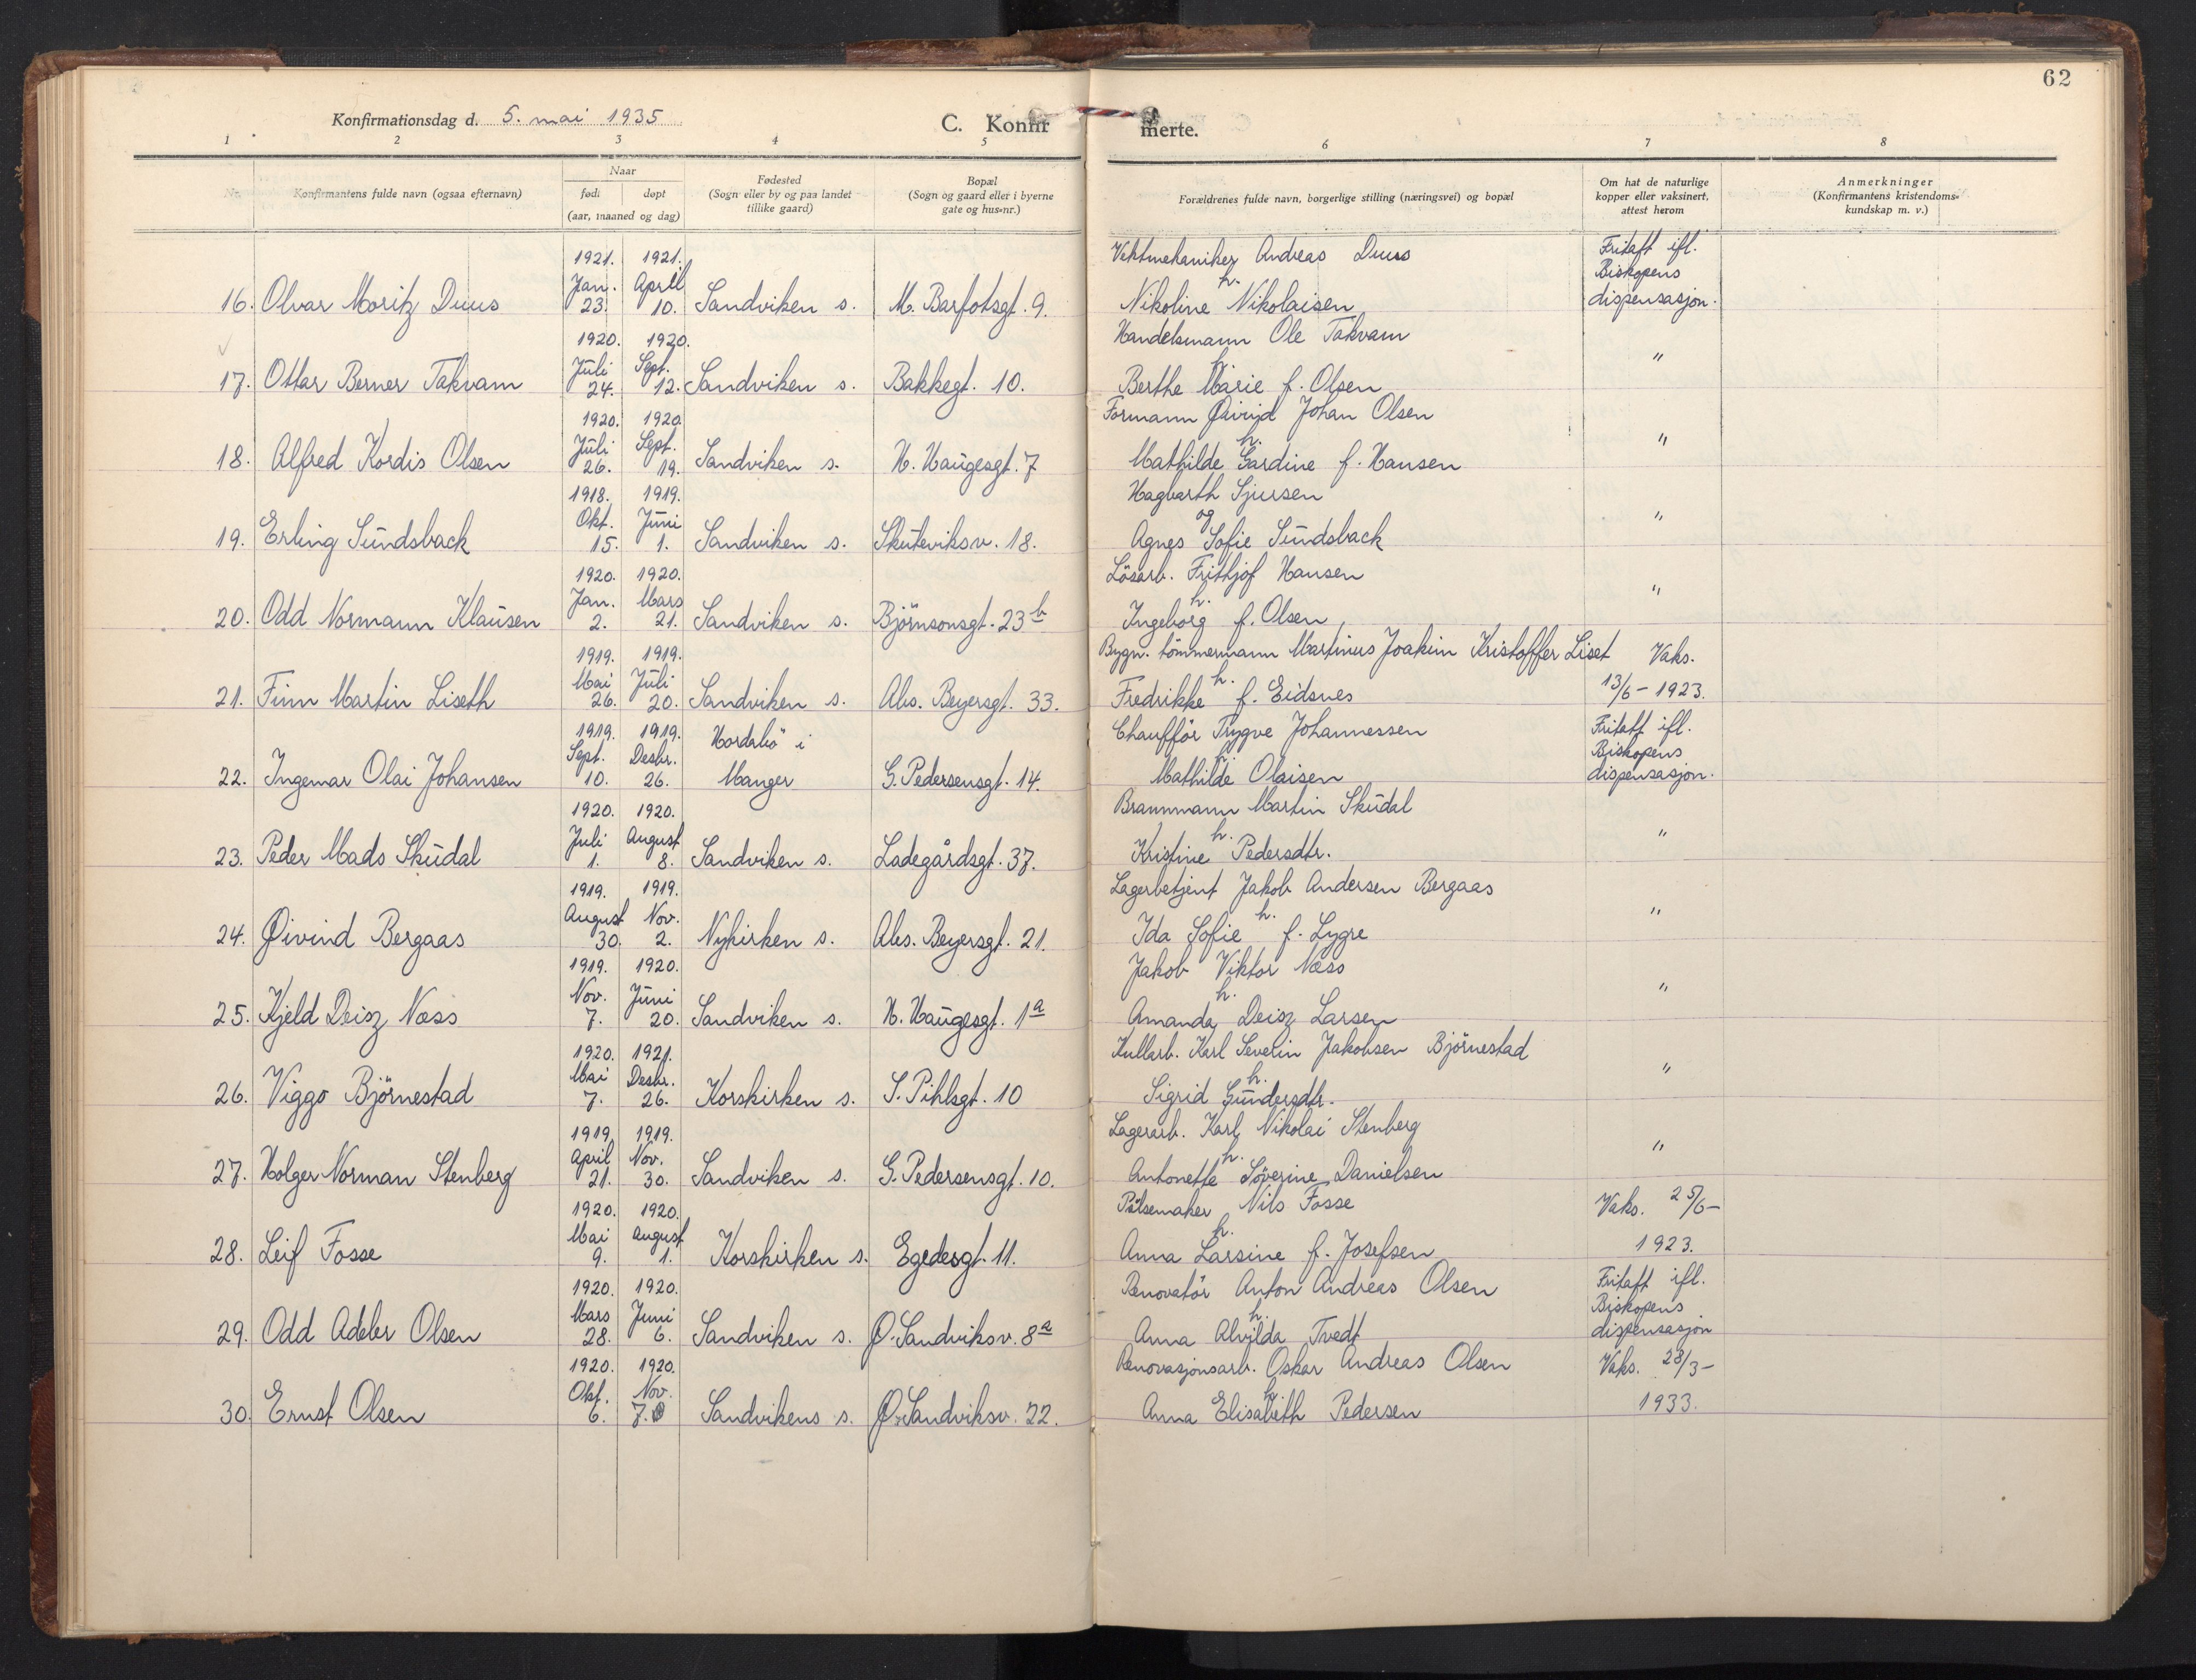 62
Konfirmationsdag d. 5. mai 1935
C. Konfir merte.
1 2 3 4 5 6 7 8
Nr. Konfirmantens fulde navn (ogsaa efternavn) Naar født døpt (aar, maaned og dag) Fødested (Sogn eller by og paa landet tillike gaard) Bopæl (Sogn og gaard eller i byerne gate og hus-nr.) Forældrenes fulde navn, borgerlige stilling (næringsvei) og bopæl Om hat de naturlige kopper eller vaksinert, attest herom Anmerkninger (Konfirmantens kristendomskundskap m. v.)
1921. 1921. Vektmekaniker Andreas Duus Fritatt ifl.
Jan. April h. Biskopens
16. Olvar Moritz Duus 23. 10. Sandviken s. M. Barfotsgt. 9. Nikoline Nikolaisen dispensasjon.
1920. 1920. Handelsmann Ole Takvam
Juli Sept. h. "
17. Ottar Berner Takvam 24. 12. Sandviken s. Bakkegt. 10. Berthe Marie f. Olsen
1920. 1920. Formann Øivind Johan Olsen
Juli Sept. h. "
18. Alfred Kordis Olsen 26. 19. Sandviken s. H. Haugesgt. 7 Mathilde Gardine f. Hansen
1918. 1919. Hagbarth Sjursen
Okt. Juni og "
19. Erling Sundsback 15. 1. Sandviken s. Skuteviksv. 18. Agnes Sofie Sundsback
1920. 1920. Lösarb. Frithjof Hansen
Jan. Mars h. "
20. Odd Normann Klausen 2. 21. Sandviken s. Björnsonsgt. 23 b Ingeborg f. Olsen
1919. 1919. Bygn. tömmermann Martinus Joakim Kristoffer Liset Vaks.
Mai Juli h. 13/6 - 1923.
21. Finn Martin Liseth 26. 20. Sandviken s. Abs. Beyersgt. 33. Fredrikke f. Eidsnes
1919. 1919. Hordabö i Chaufför Trygve Johannessen Fritatt ifl.
Sept. Desbr. h. Biskopens
22. Ingemar Olai Johansen 10. 26. Manger G. Pedersensgt. 14. Mathilde Olaisen dispensasjon.
1920. 1920. Brannmann Martin Skudal
Juli August h. "
23. Peder Mads Skudal 1. 8. Sandviken s. Ladegårdsgt. 37. Kristine Pedersdtr.
1919. 1919. Lagerbetjent Jakob Andersen Bergaas
August Nov. h. "
24. Øivind Bergaas 30. 2. Nykirken s. Abs. Beyersgt. 21. Ida Sofie f. Lygre
1919. 1920. Jakob Viktor Næss
Nov. Juni h. "
25. Kjeld Deisz Næss 7. 20. Sandviken s. H. Haugesgt. 1 a Amanda Deisz Larsen
1920. 1921. Kullarb. Karl Severin Jakobsen Björnestad
Mai Desbr. h. "
26. Viggo Björnestad 7. 26. Korskirken s. S. Pihlsgt. 10 Sigrid Gundersdtr.
1919. 1919. Lagerarb. Karl Nikolai Stenberg
April Nov. h. "
27. Holger Norman Stenberg 21. 30. Sandviken s. G. Pedersensgt. 10. Antonette Söverine Danielsen
1920. 1920. Pölsemaker Nils Fosse Vaks. 25/6 -
Mai August h.
28. Leif Fosse 9. 1. Korskirken s. Egedesgt. 11. Anna Larsine f. Josefsen 1923.
1920. 1920. Renovatör Anton Andreas Olsen Fritatt ifl.
Mars Juni h. Biskopens
29. Odd Adeler Olsen 28. 6. Sandviken s. Ø. Sandviksv. 8 a Anna Alvilda Tvedt dispensasjon
1920. 1920. Renovasjonsarb. Oskar Andreas Olsen Vaks. 23/3 -
Okt. Nov. h.
30. Ernst Olsen 6. 7. Sandvikens s. Ø. Sandviksv. 22. Anna Elisabeth Pedersen 1933.